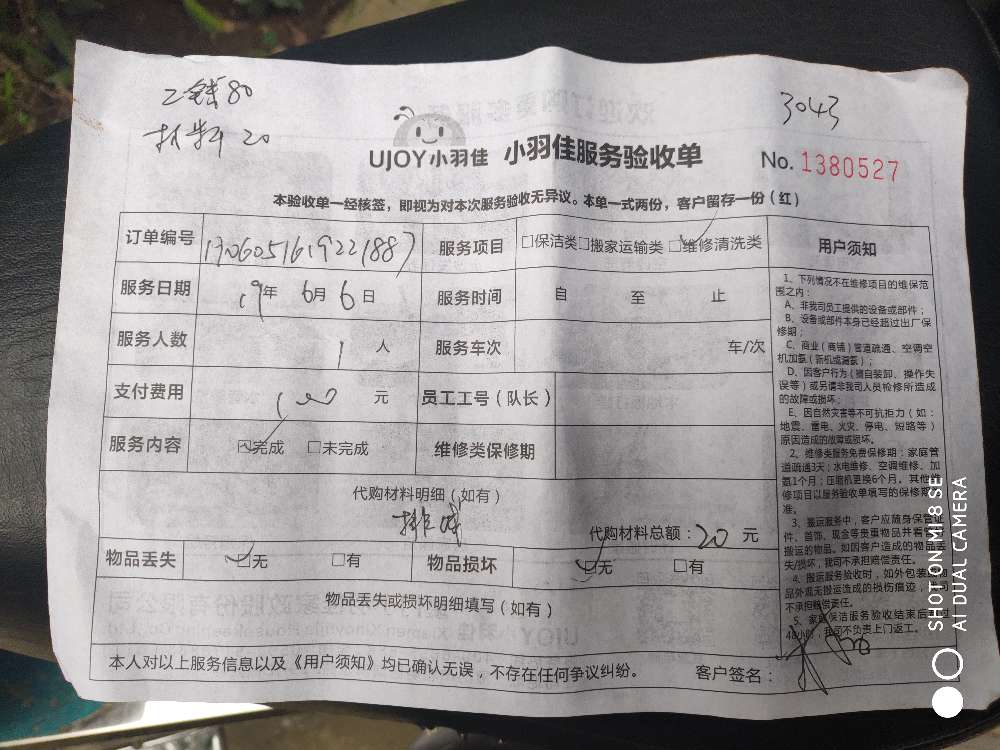 工钱80
材料20
3043
UJOY小羽佳 小羽佳服务验收单
No. 1380527
本验收单一经核签，即视为对本次服务验收无异议。本单一式两份，客户留存一份（红）
订单编号 服务项目 □保洁类□搬家运输类□维修清洗类
服务日期 19年6月6日 服务时间 自 至 止
服务人数 1人 服务车次 车/次
支付费用 100元 员工工号（队长）
服务内容 ☑完成 □未完成 维修类保修期
代购材料明细（如有）
代购材料总额：20元
物品丢失 ☑无 □有 物品损坏 ☑无 □有
物品丢失或损坏明细填写（如有）
本人对以上服务信息以及《用户须知》均已确认无误，不存在任何争议纠纷。 客户签名：
用户须知
1、下列情况不在维修项目的维保范
围之内：
A、非我司员工提供的设备或部件；
B、设备或部件本身已经超过出厂保
修期；
C、商业（商铺）管道疏通、空调空
机加氨（新机或漏氨）；
D、因客户行为（擅自装卸、操作失
误等）或另请非我司人员检修所造成
的故障或损坏；
E、因自然灾害等不可抗拒力（如：
地震、雷电、火灾、停电、短路等）
原因造成的故障或损坏。
2、维修类服务免费保修期：家庭管
道疏通3天；水电维修、空调维修、加
氨1个月；压缩机更换6个月。其他维
修项目以服务验收单填写的保修期
准。
3、搬运服务中，客户应随身保管证
件、首饰、现金等贵重物品并看
搬运的物品。如因客户造成的物品丢
失/损坏，我司不承担赔偿责任。
4、搬运服务验收时，如外包装
品外观无搬运造成的损伤痕迹，
不承担赔偿责任。
5、家庭保洁服务验收结束后
48小时，我司不负责上门返工。
SHOT ON MI 8 SE
AI DUAL CAMERA